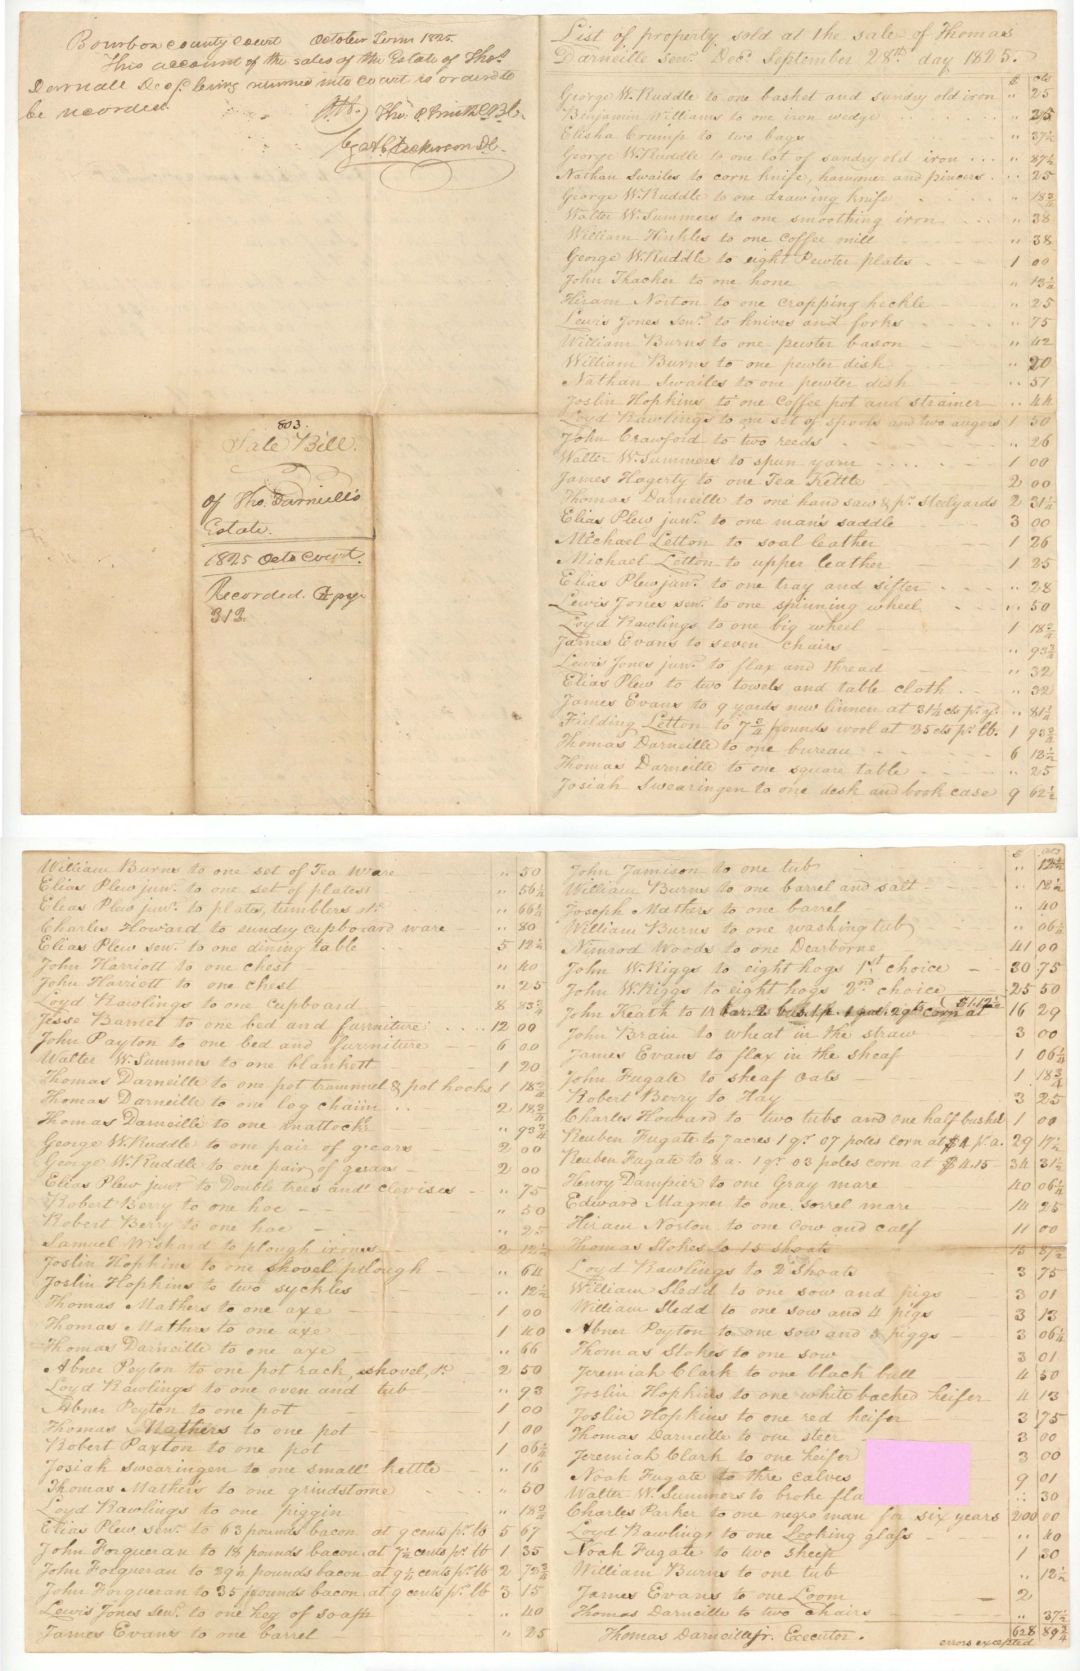 Bourbon County Court October Term 1825
This account of the sales of the Estate of Thos.
Darneall Decd. being returned into court is ordered to
be recorded.
Att. Tho. P Smith C.B.C.
by A C Dickerson D.C.
803.
Sale Bill.
Of Tho. Darneille's
Estate.
1825 Octo Court.
Recorded. page
312.
List of property sold at the sale of Thomas
Darneille senr. Decd. September 28th day 1825.
$ cts
George W. Ruddle to one basket and sundry old iron " 25
Benjamin Williams to one iron wedge " 25
Elisha Crump to two bags " 37½
George W. Ruddle to one lot of sundry old iron " 87½
Nathan Swailes to corn knife, hammer and pincers " 25
George W. Ruddle to one drawing knife " 18¾
Walter W. Summers to one smoothing iron " 38
William Hinkles to one coffee mill " 38
George W. Ruddle to eight Pewter plates 1 00
John Thacker to one hone " 13½
Hiram Norton to one crapping heckle " 25
Lewis Jones senr. to knives and forks " 75
William Burns to one pewter bason " 42
William Burns to one pewter dish " 20
Nathan Swailes to one pewter dish " 51
Joslin Hopkins to one Coffee pot and strainer " 44
Loyd Rawlings to one set of spools and two augers 1 50
John Crawford to two reeds " 26
Walter W. Summers to spun yarn 1 00
James Hagerty to one Tea Kettle 2 00
Thomas Darneille to one hand saw & pr. steelyards 2 31¼
Elias Plew junr. to one man's saddle 3 00
Michael Letton to soal leather 1 26
Michael Letton to upper leather 1 25
Elias Plew junr. to one tray and sifter " 28
Lewis Jones senr. to one spinning wheel " 50
Loyd Rawlings to one big wheel 1 18¾
James Evans to seven chairs " 93¾
Lewis Jones junr. to flax and thread " 32
Elias Plew to two towels and table cloth " 32
James Evans to 9 yards new linnen at 31¼ cts pr. yd. " 81¼
Fielding Letton to 7¾ pounds wool at 25 cts pr. lb. 1 93¾
Thomas Darneille to one bureau 6 12½
Thomas Darneille to one square table " 25
Josiah Swearingen to one desk and book case 9 62½
William Burns to one set of Tea Ware " 50
Elias Plew junr. to one set of plates " 56¼
Elias Plew junr. to plates, tumblers &c. " 66¼
Charles Howard to sundry cupboard ware " 80
Elias Plew senr. to one dining table 5 12½
John Harriott to one chest " 40
John Harriott to one chest " 25
Loyd Rawlings to one Cupboard 8 33¾
Jesse Barnet to one bed and furniture 12 00
John Payton to one bed and furniture 6 00
Walter W. Summers to one blankett 1 20
Thomas Darneille to one pot trammel & pot hooks 1 18¾
Thomas Darneille to one log chain 2 18¾
Thomas Darneille to one mattock " 93¾
George W. Ruddle to one pair of gears 2 00
George W. Ruddle to one pair of gears 2 00
Elias Plew junr. to Double trees and clevises " 75
Robert Berry to one hoe " 50
Robert Berry to one hoe " 25
Samuel Wishard to plough irons 2 12½
Joslin Hopkins to one shovel plough " 64
Joslin Hopkins to two syckles " 12½
Thomas Mathers to one axe 1 00
Thomas Mathers to one axe 1 40
Thomas Darneille to one axe " 66
Abner Peyton to one pot rack, shovel, &c 2 50
Loyd Rawlings to one oven and tub " 93
Abner Peyton to one pot 1 00
Thomas Mathers to one pot 1 00
Robert Payton to one pot 1 06¼
Josiah Swearingen to one small kettle " 16
Thomas Mathers to one grindstone " 50
Loyd Rawlings to one piggin " 18¾
Elias Plew senr. to 63 pounds bacon at 9 cents pr. lb 5 67
John Forqueran to 18 pounds bacon at 7½ cents pr. lb 1 35
John Forqueran to 29½ pounds bacon at 9¼ cents pr. lb 2 72¾
John Forqueran to 35 pounds bacon at 9 cents pr. lb 3 15
Lewis Jones senr. to one keg of soap " 40
James Evans to one barrel " 25
$ cts
John Jamison to one tub " 12½
William Burns to one barrel and salt " 12½
Joseph Mathers to one barrel " 40
William Burns to one washing tub " 06¼
Nimrod Woods to one Dearborne 41 00
John W. Riggs to eight hogs 1st choice 30 75
John W. Riggs to eight hogs 2nd choice 25 50
John Heath to 11 bar. 2 bush. 1 p. 1 gal. 2 qts corn at $1.12½ 16 29
John Brain to wheat in the straw 3 00
James Evans to flax in the sheaf 1 06¼
John Fugate to sheaf oats 1 18¾
Robert Berry to Hay 3 25
Charles Howard to two tubs and one half bushel 1 00
Reuben Fugate to 7 acres 1 qr. 07 poles corn at $4 a. 29 17½
Reuben Fugate to 8 a. 1 qr 03 poles corn at $4.15 34 31½
Henry Dampier to one Gray mare 40 06¼
Edward Magner to one sorrel mare 14 25
Hiram Norton to one Cow and calf 11 00
Thomas Stokes to 15 shoats 15 87½
Loyd Rawlings to 2 Shoats 3 75
William Sledd to one sow and pigs 3 01
William Sledd to one sow and 4 pigs 3 13
Abner Peyton to one sow and 3 piggs 3 06¼
Thomas Stokes to one sow 3 01
Jeremiah Clark to one black bull 4 50
Joslin Hopkins to one white backed heifer 4 13
Joslin Hopkins to one red heifer 3 75
Thomas Darneille to one steer 3 00
Jeremiah Clark to one heifer 3 00
Noah Fugate to thre calves 9 01
Walter W. Summers to broke fla " 30
Charles Parker to one negro man for six years 200 00
Loyd Rawlings to one Looking glass " 40
Noah Fugate to two sheep 1 30
William Burns to one tub " 12½
James Evans to one Loom 2
Thomas Darneille to two chairs " 37½
Thomas Darneille jr. Executor. 628 89¾
errors excepted